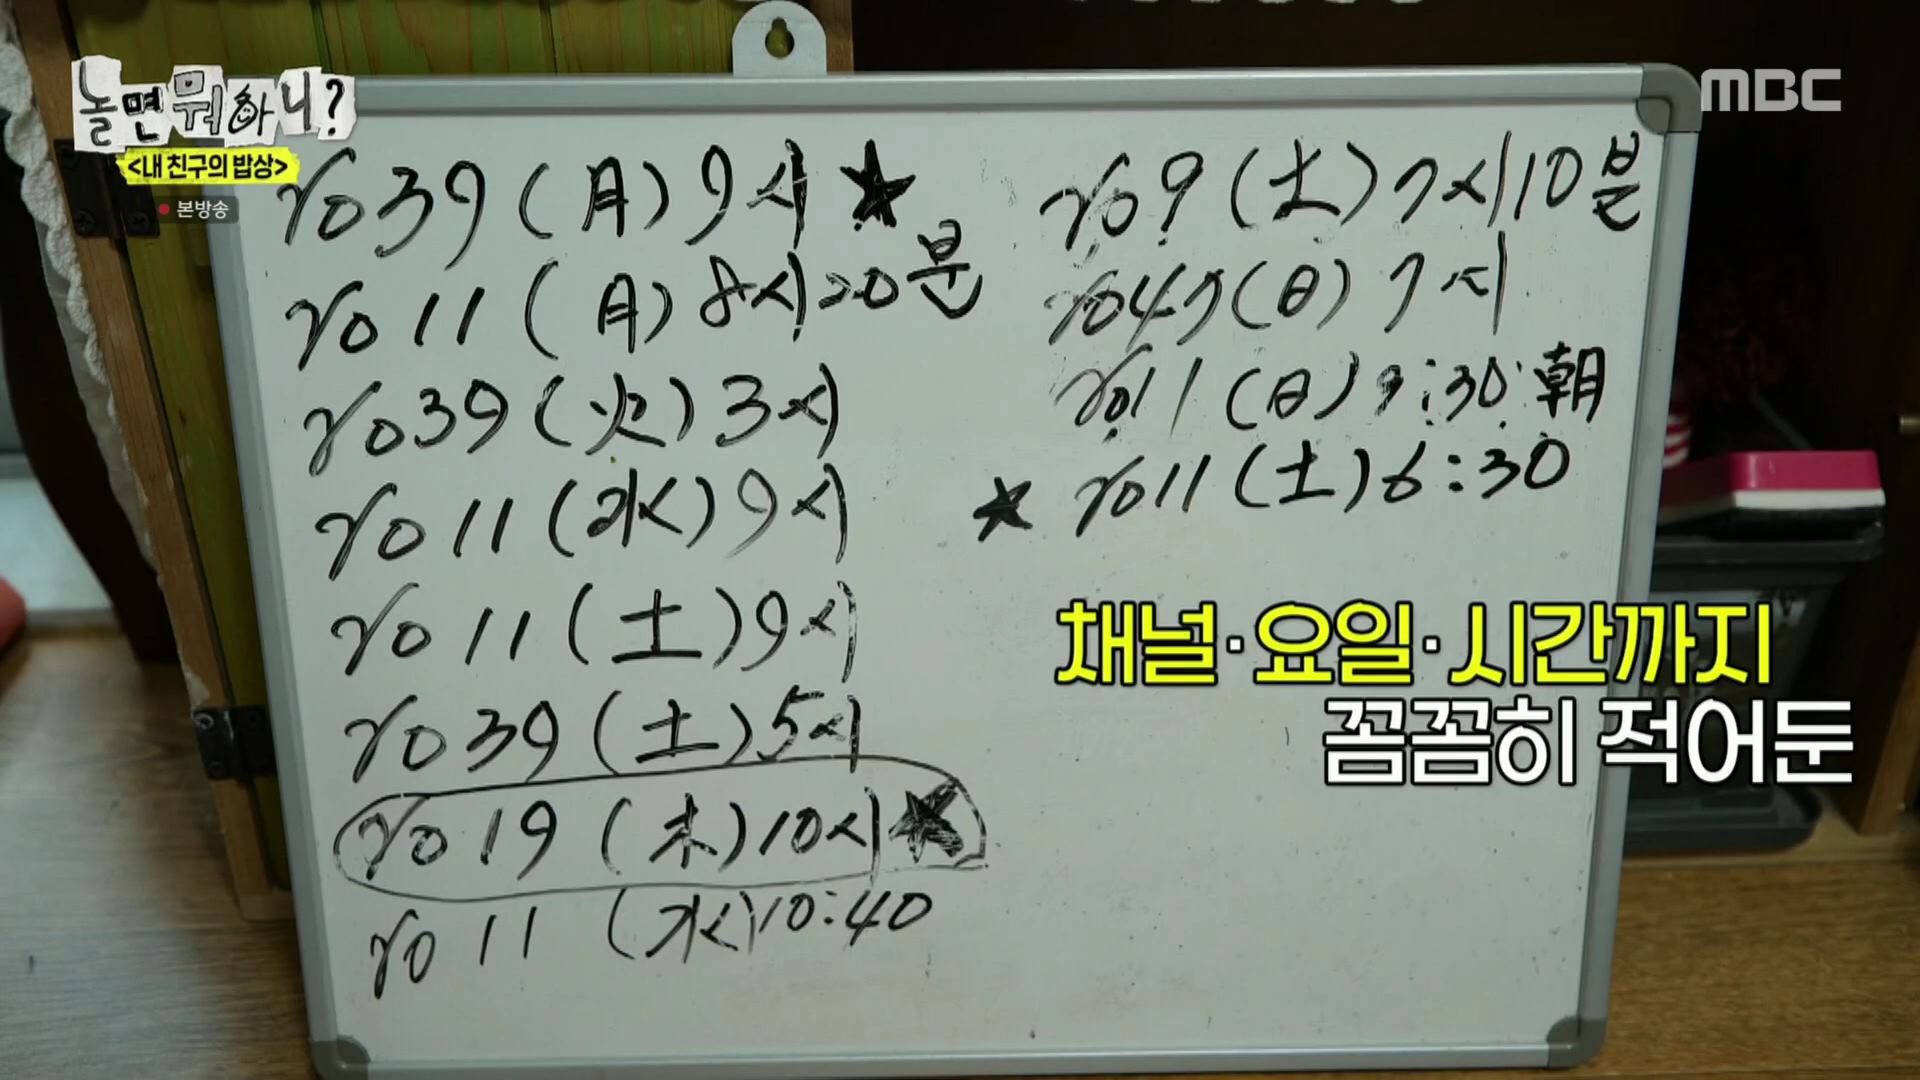 놀면 뭐하니?
<내 친구의 밥상>
본방송
MBC
no 39 (月) 9시 ★
no 11 (月) 8시 20분
no 39 (火) 3시
no 11 (水) 9시
no 11 (土) 9시
no 39 (土) 5시
no 19 (木) 10시 ★
no 11 (水) 10:40
no 9 (土) 7시 10분
no 47 (日) 7시
no 11 (日) :30 朝
★ no 11 (土) 6:30
채널·요일·시간까지
꼼꼼히 적어둔